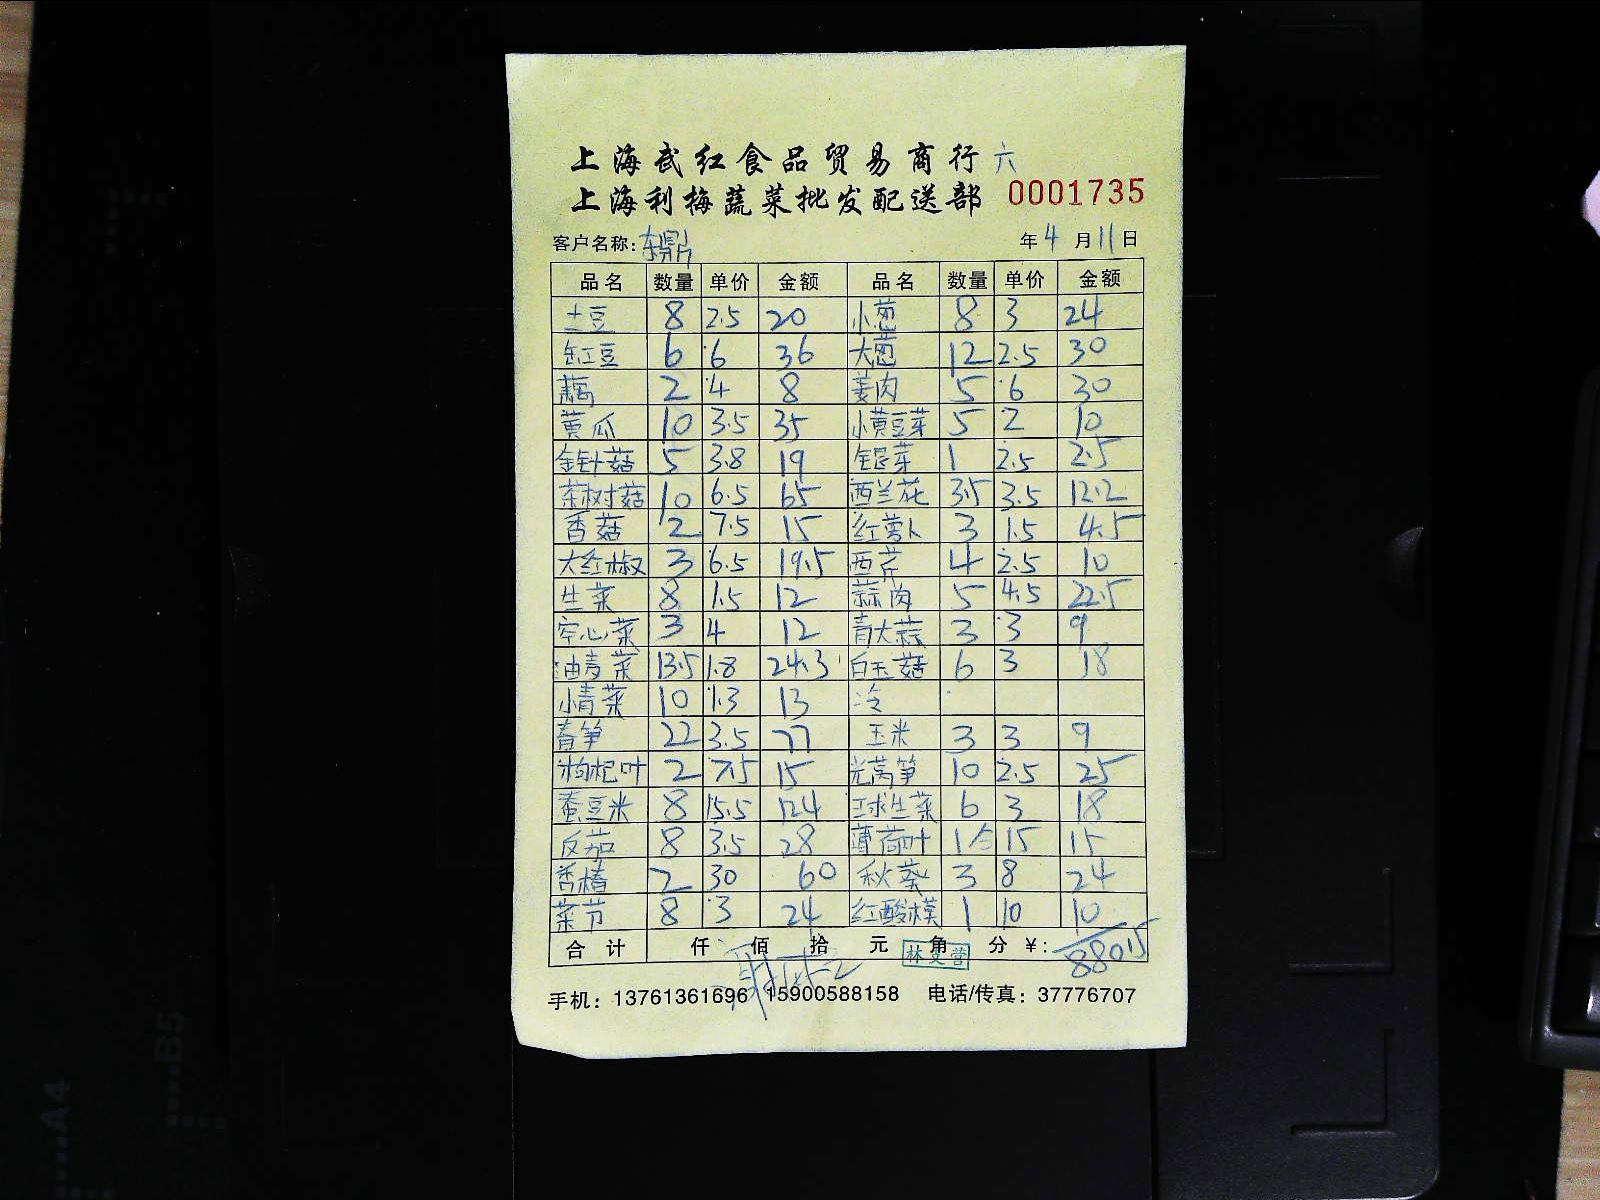 上海武红食品贸易商行 六
上海利梅蔬菜批发配送部 0001735
客户名称: 东鼎 年 4 月 11 日
品名 数量 单价 金额 品名 数量 单价 金额
土豆 8 2.5 20 小葱 8 3 24
缸豆 6 6 36 大葱 12 2.5 30
藕 2 4 8 姜肉 5 6 30
黄瓜 10 3.5 35 小黄豆芽 5 2 10
金针菇 5 3.8 19 银芽 1 2.5 2.5
茶树菇 10 6.5 65 西兰花 3.5 3.5 12.2
香菇 2 7.5 15 红萝卜 3 1.5 4.5
大红椒 3 6.5 19.5 西芹 4 2.5 10
生菜 8 1.5 12 蒜肉 5 4.5 22.5
空心菜 3 4 12 青大蒜 3 3 9
油麦菜 13.5 1.8 24.3 白玉菇 6 3 18
小青菜 10 1.3 13 冷
春笋 22 3.5 77 玉米 3 3 9
枸杞叶 2 7.5 15 光莴笋 10 2.5 25
蚕豆米 8 15.5 124 球生菜 6 3 18
反茄 8 3.5 28 薄荷叶 1 15 15
香椿 2 30 60 秋葵 3 8 24
菜节 8 3 24 红酸模 1 10 10
合计 仟 佰 拾 元 角 分 ¥: 880.5
手机: 13761361696 15900588158 电话/传真: 37776707